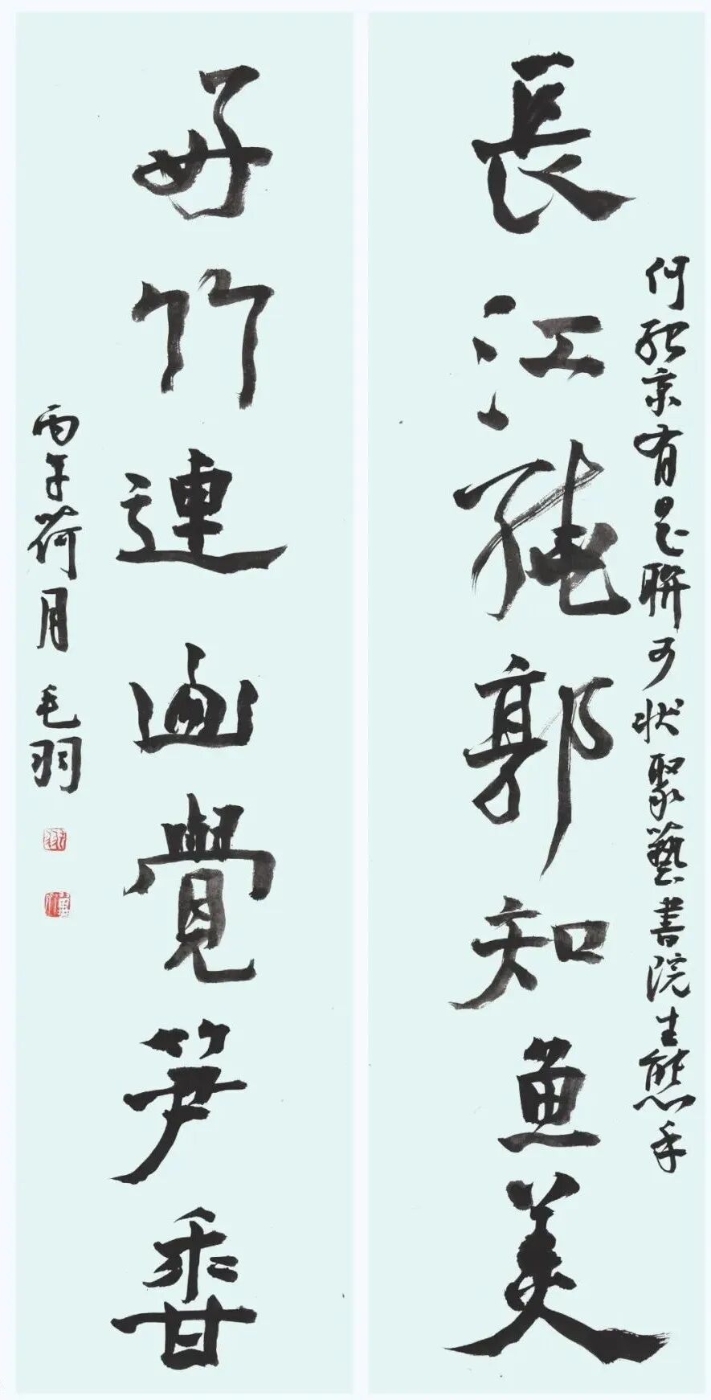 何紹京有是聯可狀聚藝書院生態乎
長江繞郭知魚美
好竹連山覺笋香
丙午荷月 毛羽